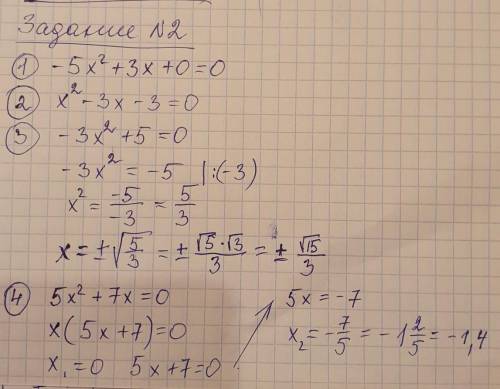 Задание №2
① -5x² + 3x + 0 = 0
② x² - 3x - 3 = 0
③ -3x² + 5 = 0
-3x² = -5 | :(-3)
x² = -5/-3 = 5/3
x = ±√(5/3) = ± √5·√3/3 = ± √15/3
④ 5x² + 7x = 0
x(5x + 7) = 0
x₁ = 0 5x + 7 = 0
5x = -7
x₂ = -7/5 = -1 2/5 = -1,4